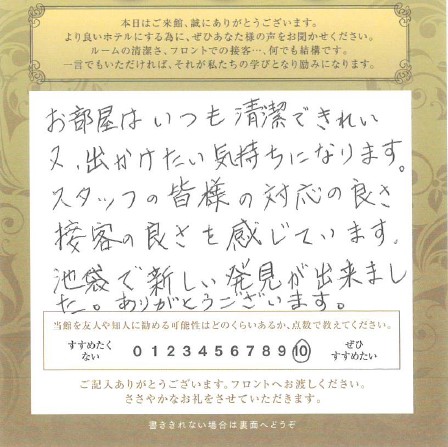 本日はご来館、誠にありがとうございます。
より良いホテルにする為に、ぜひあなた様の声をお聞かせください。
ルームの清潔さ、フロントでの接客…、何でも結構です。
一言でもいただければ、それが私たちの学びとなり励みになります。
お部屋はいつも清潔できれい
又、出かけたい気持ちになります。
スタッフの皆様の対応の良さ
接客の良さを感じています。
池袋で新しい発見が出来まし
た。ありがとうございます。
当館を友人や知人に勧める可能性はどのくらいあるか、点数で教えてください。
すすめたくない 0 1 2 3 4 5 6 7 8 9 10 ぜひすすめたい
ご記入ありがとうございます。フロントへお渡しください。
ささやかなお礼をさせていただきます。
書ききれない場合は裏面へどうぞ